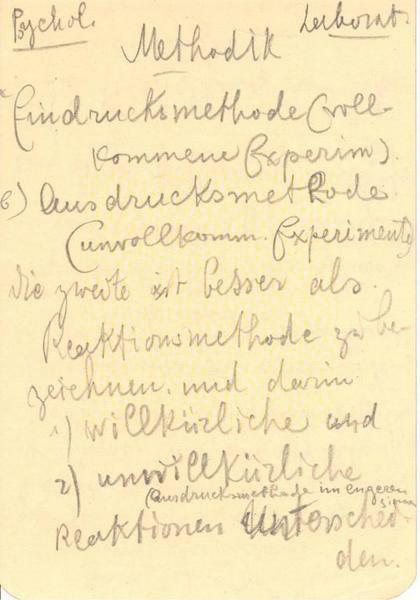 Psychol. Laborat.
Methodik
Eindrucksmethode (voll-
kommene Experim)
b) Ausdrucksmethode
(unvollkomm. Experimente)
die zweite ist besser als
Reaktionsmethode zu be-
zeichnen. und darin
1) willkürliche und
2) unwillkürliche
(Ausdrucksmethode im engeren
Sinne
Reaktionen Unterschei-
den.